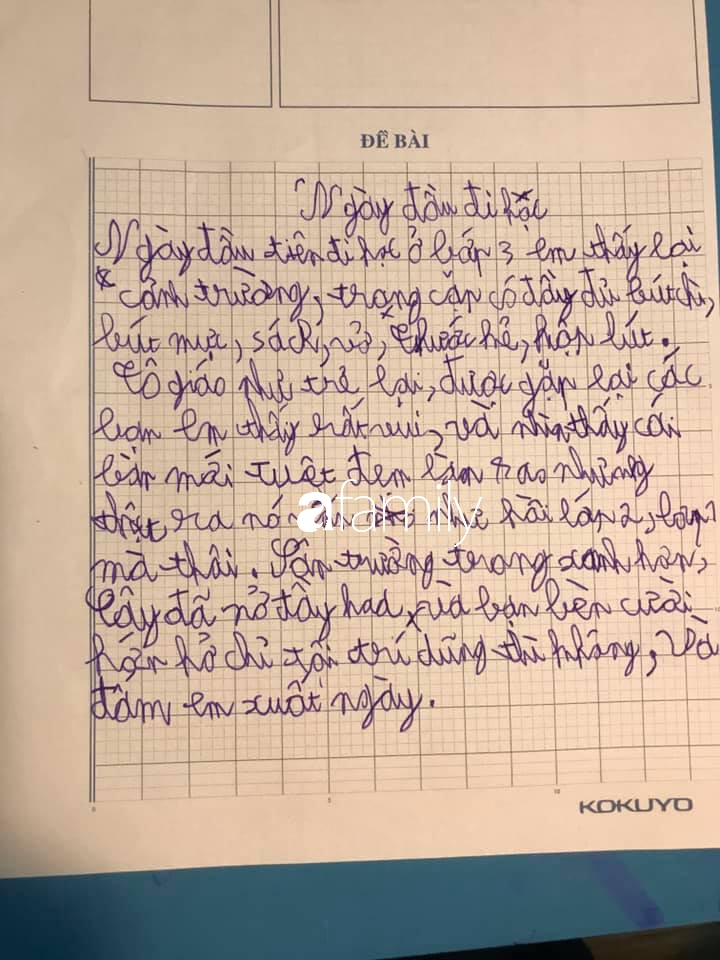 ĐỀ BÀI
Ngày đầu đi học
Ngày đầu tiên đi học ở lớp 3 em thấy lại
cảnh trường, trong cặp có đầy đủ bút chì,
bút mực, sách, vở, thước kẻ, hộp bút.
Cô giáo như trẻ lại, được gặp lại các
bạn em thấy rất vui, và nhìn thấy cái
bàn mới tuyệt đẹp làm sao nhưng
thật ra nó như hồi lớp 2, lớp 1
mà thôi. Sân trường trong xanh hơn,
Cây đã nở đầy hoa, vừa bạn bèn cười
hớn hở chỉ tội trí dũng thì không, Và
đấm em suốt ngày.
afamily
5
10
KOKUYO